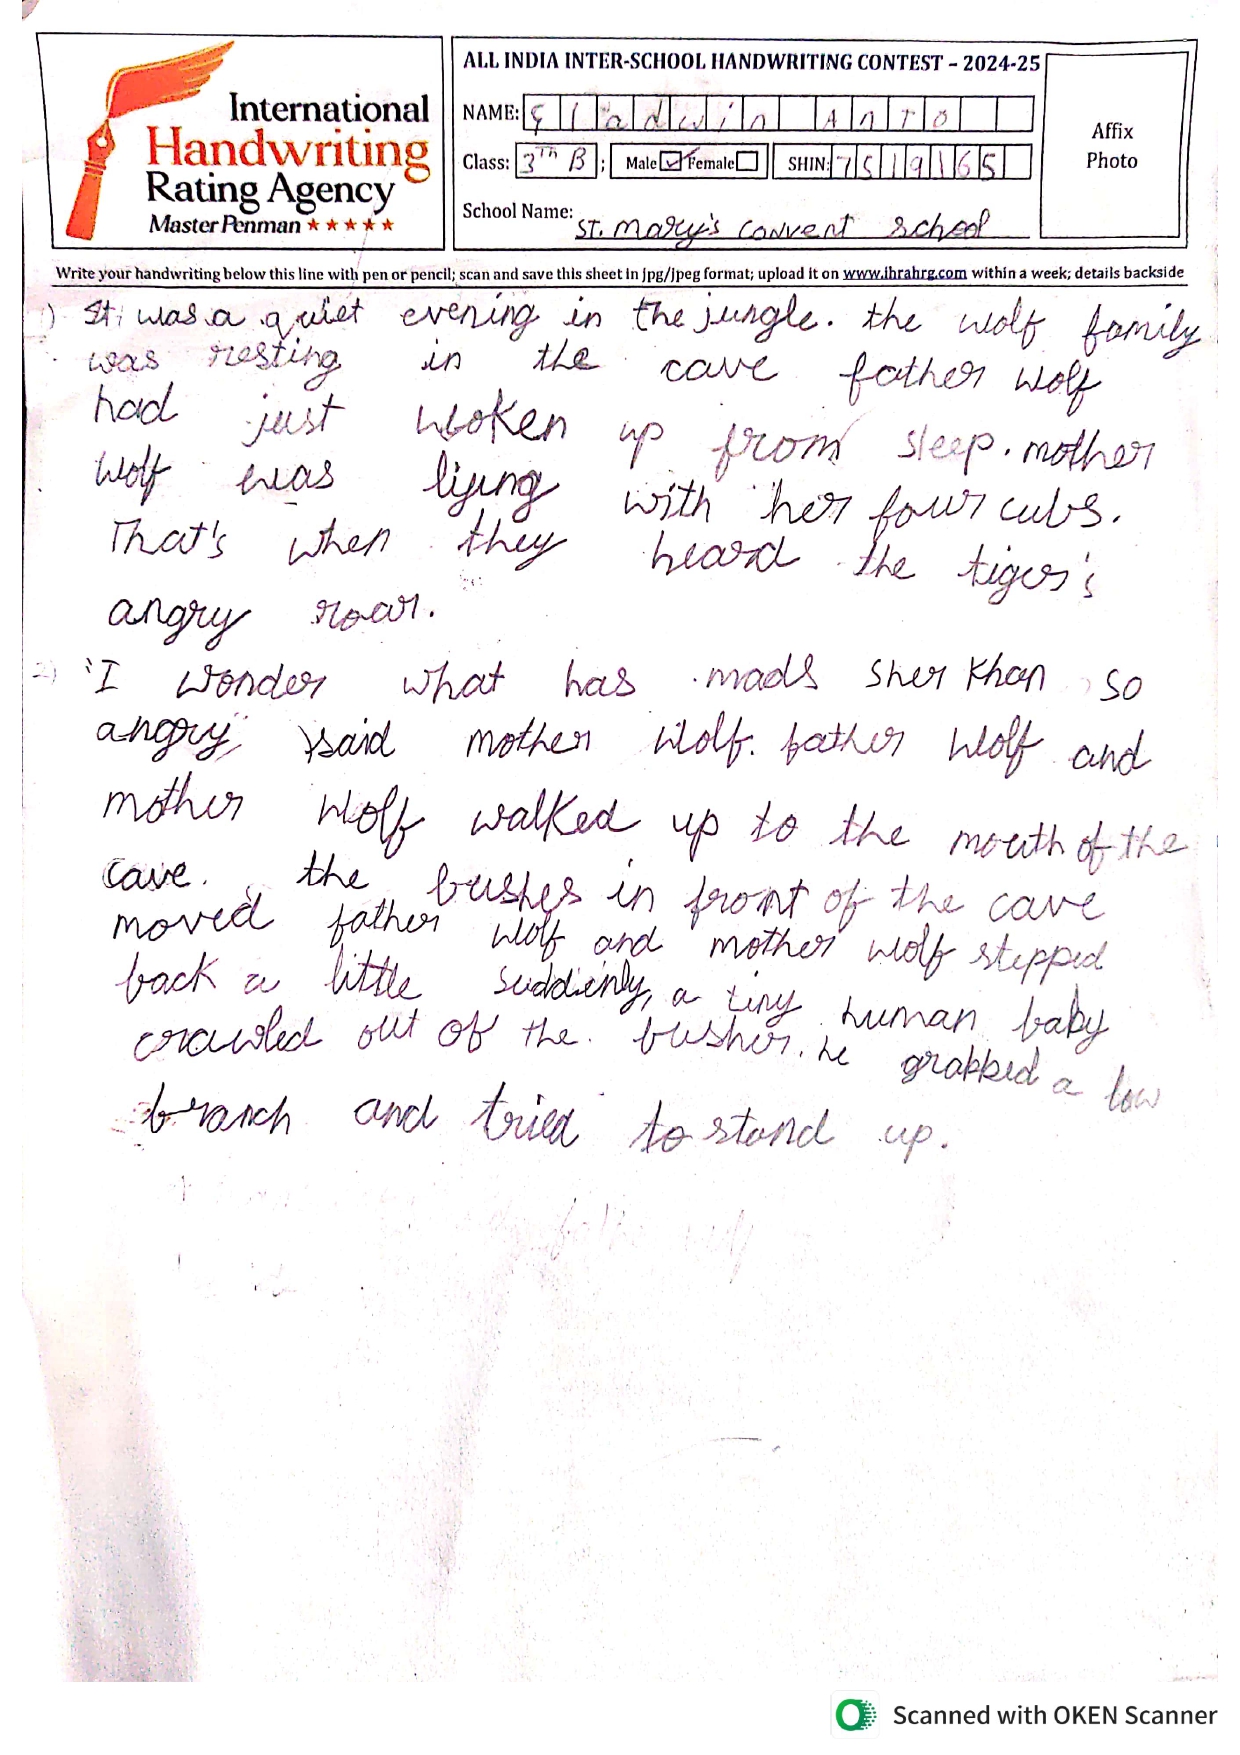 ALL INDIA INTER-SCHOOL HANDWRITING CONTEST – 2024-25
International
Handwriting
Rating Agency
Master Penman ★★★★★
NAME: Gladwin Anto
Class: 3Th B ; Male ☑ Female ☐ SHIN: 7519165
School Name: ST. Mary's convent school
Affix
Photo
Write your handwriting below this line with pen or pencil; scan and save this sheet in jpg/jpeg format; upload it on www.ihrahrg.com within a week; details backside
1) It was a quiet evening in the jungle. the wolf family
was resting in the cave father wolf
had just woken up from sleep. mother
wolf was liying with her four cubs.
That's when they heard the tiger's
angry roar.
2) 'I wonder what has mads Sher Khan so
angry, said mother wolf. father wolf and
mother wolf walked up to the mouth of the
cave. the bushes in front of the cave
moved father wolf and mother wolf stepped
back a little suddienly, a tiny human baby
crawled out of the busher. he grabbed a low
branch and tried to stand up.
Scanned with OKEN Scanner